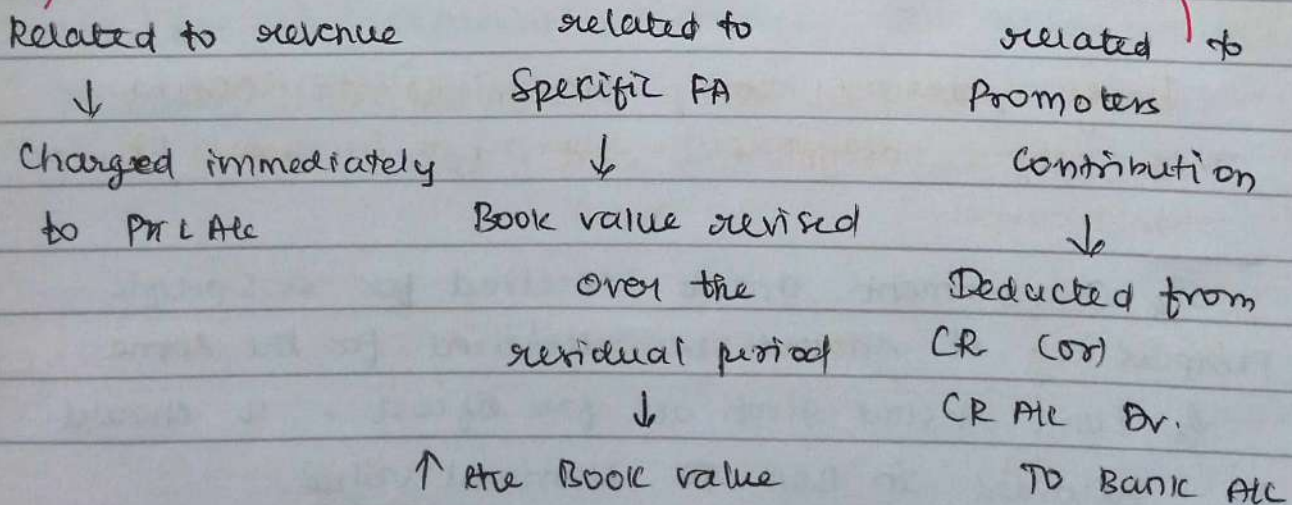 Related to revenue
↓
Charged immediately
to P&L A/c
related to
Specific FA
↓
Book value revised
over the
residual period
↓
↑ the Book value
related to
Promoters
contribution
↓
Deducted from
CR (or)
CR A/c Dr.
TO Bank A/c